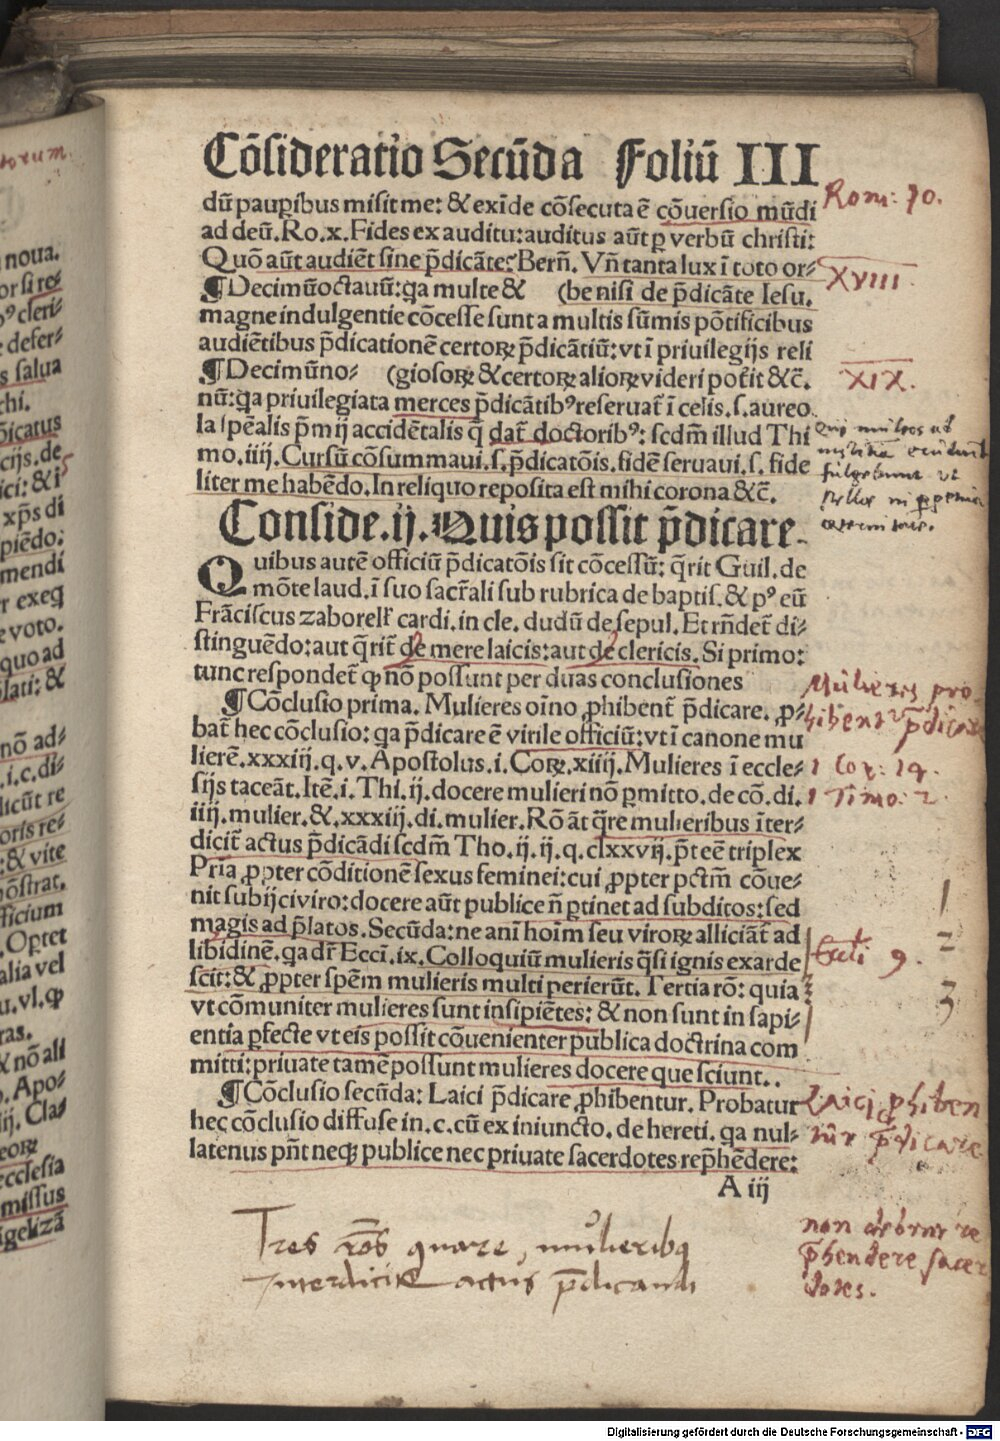 Cōsideratio Secūda Foliū III
dū pauꝑibus misit me: & exīde cōsecuta ē cōuersio mūdi
ad deū. Ro. x. Fides ex auditu: auditus aūt ꝑ verbū christi:
Quō aūt audiēt sine p̄dicāte? Berñ. Vñ tanta lux ī toto or-
¶ Decimūoctauū: ꝗa multe & (be nisi de p̄dicāte Iesu.
magne indulgentie cōcesse sunt a multis sūmis pōtificibus
audiētibus p̄dicationē certoꝝ p̄dicātiū: vt ī priuilegijs reli
¶ Decimūno- (giosoꝝ & certoꝝ alioꝝ videri pot̄it &c̄.
nū: ꝗa priuilegiata merces p̄dicātibꝰ reseruat̄ ī celis. s. aureo
la spēalis p̄mij accidētalis q̄ dat̄ doctoribꝰ: scdm̄ illud Thi
mo. iiij. Cursū cōsummaui. s. p̄dicatōis. fidē seruaui. s. fide
liter me habēdo. In reliquo reposita est mihi corona &c̄.
Conside. ij. Quis possit p̄dicare.
Quibus autē officiū p̄dicatōis sit cōcessū: q̄rit Guil. de
mōte laud. ī suo sacr̄ali sub rubrica de baptis. & pꝰ eū
Frāciscus zaborell̄ cardi. in cle. dudū de sepul. Et rñdet̄ di-
stinguēdo: aut q̄rit̄ de mere laicis: aut de clericis. Si primo:
tunc respondet̄ ꝙ nō possunt per duas conclusiones
¶ Cōclusio prima. Mulieres oīno ꝓhibent̄ p̄dicare. ꝓ-
bat̄ hec cōclusio: ꝗa p̄dicare ē virile officiū: vt ī canone mu
lierē. xxxiij. q. v. Apostolus. i. Coꝝ. xiiij. Mulieres ī eccle-
sijs taceāt. Itē. i. Thi. ij. docere mulieri nō ꝑmitto. de cō. di.
iiij. mulier. &. xxxiij. di. mulier. Rō āt q̄re mulieribus īter-
dicit̄ actus p̄dicādi scdm̄ Tho. ij. ij. q. clxxvij. p̄t eē triplex
Pria ꝓpter cōditionē sexus feminei: cui ꝓpter pctm̄ cōue-
nit subijci viro: docere aūt publice ñ ꝑtinet ad subditos: sed
magis ad p̄latos. Secūda: ne ani hoīm seu viroꝝ alliciāt̄ ad
libidinē. ꝗa dr̄ Ecci. ix. Colloquiū mulieris q̄si ignis exarde
scit: & ꝓpter spēm mulieris multi perierūt. Tertia rō: quia
vt cōmuniter mulieres sunt insipiētes: & non sunt in sapi-
entia ꝑfecte vt eis possit cōuenienter publica doctrina com
mitti: priuate tamē possunt mulieres docere que sciunt..
¶ Cōclusio secūda: Laici p̄dicare ꝓhibentur. Probatur
hec cōclusio diffuse in. c. cū ex iniuncto. de hereti. ꝗa nul-
latenus pn̄t neqꝫ publice nec priuate sacerdotes rep̄hēdere:
A iij
Rom: 10.
XVIII
XIX.
Qui multos ad
fulgebunt ut
stelle in
Mulieres pro
hibentur p̄dicare
1 Cor: 14.
1 Timo: 2
1
2
3
Eccli 9.
Laici ꝓhiben
tur p̄dicare
non debent re
p̄hendere sacer
dotes.
Tres rōes quare mulieribꝫ
interdicit̄ actus p̄dicandi
noua.
or si re-
ꝰ cleri-
e defer-
s salua
chi.
ōicatus
cijs. de
ici: & i
xp̄s di
piēdo:
mendi
r exeq
e voto.
quo ad
lati: &
nō ad-
. i. c. di-
licūt re
oris re-
: & vite
ōstrat.
fficium
. Opꝛtet
alia vel
u. vl. ꝙ
ras.
& nō ali
. Apo-
ij. Cla-
eoꝝ
ecclesia
missus
igelizā
Digitalisierung gefördert durch die Deutsche Forschungsgemeinschaft - DFG